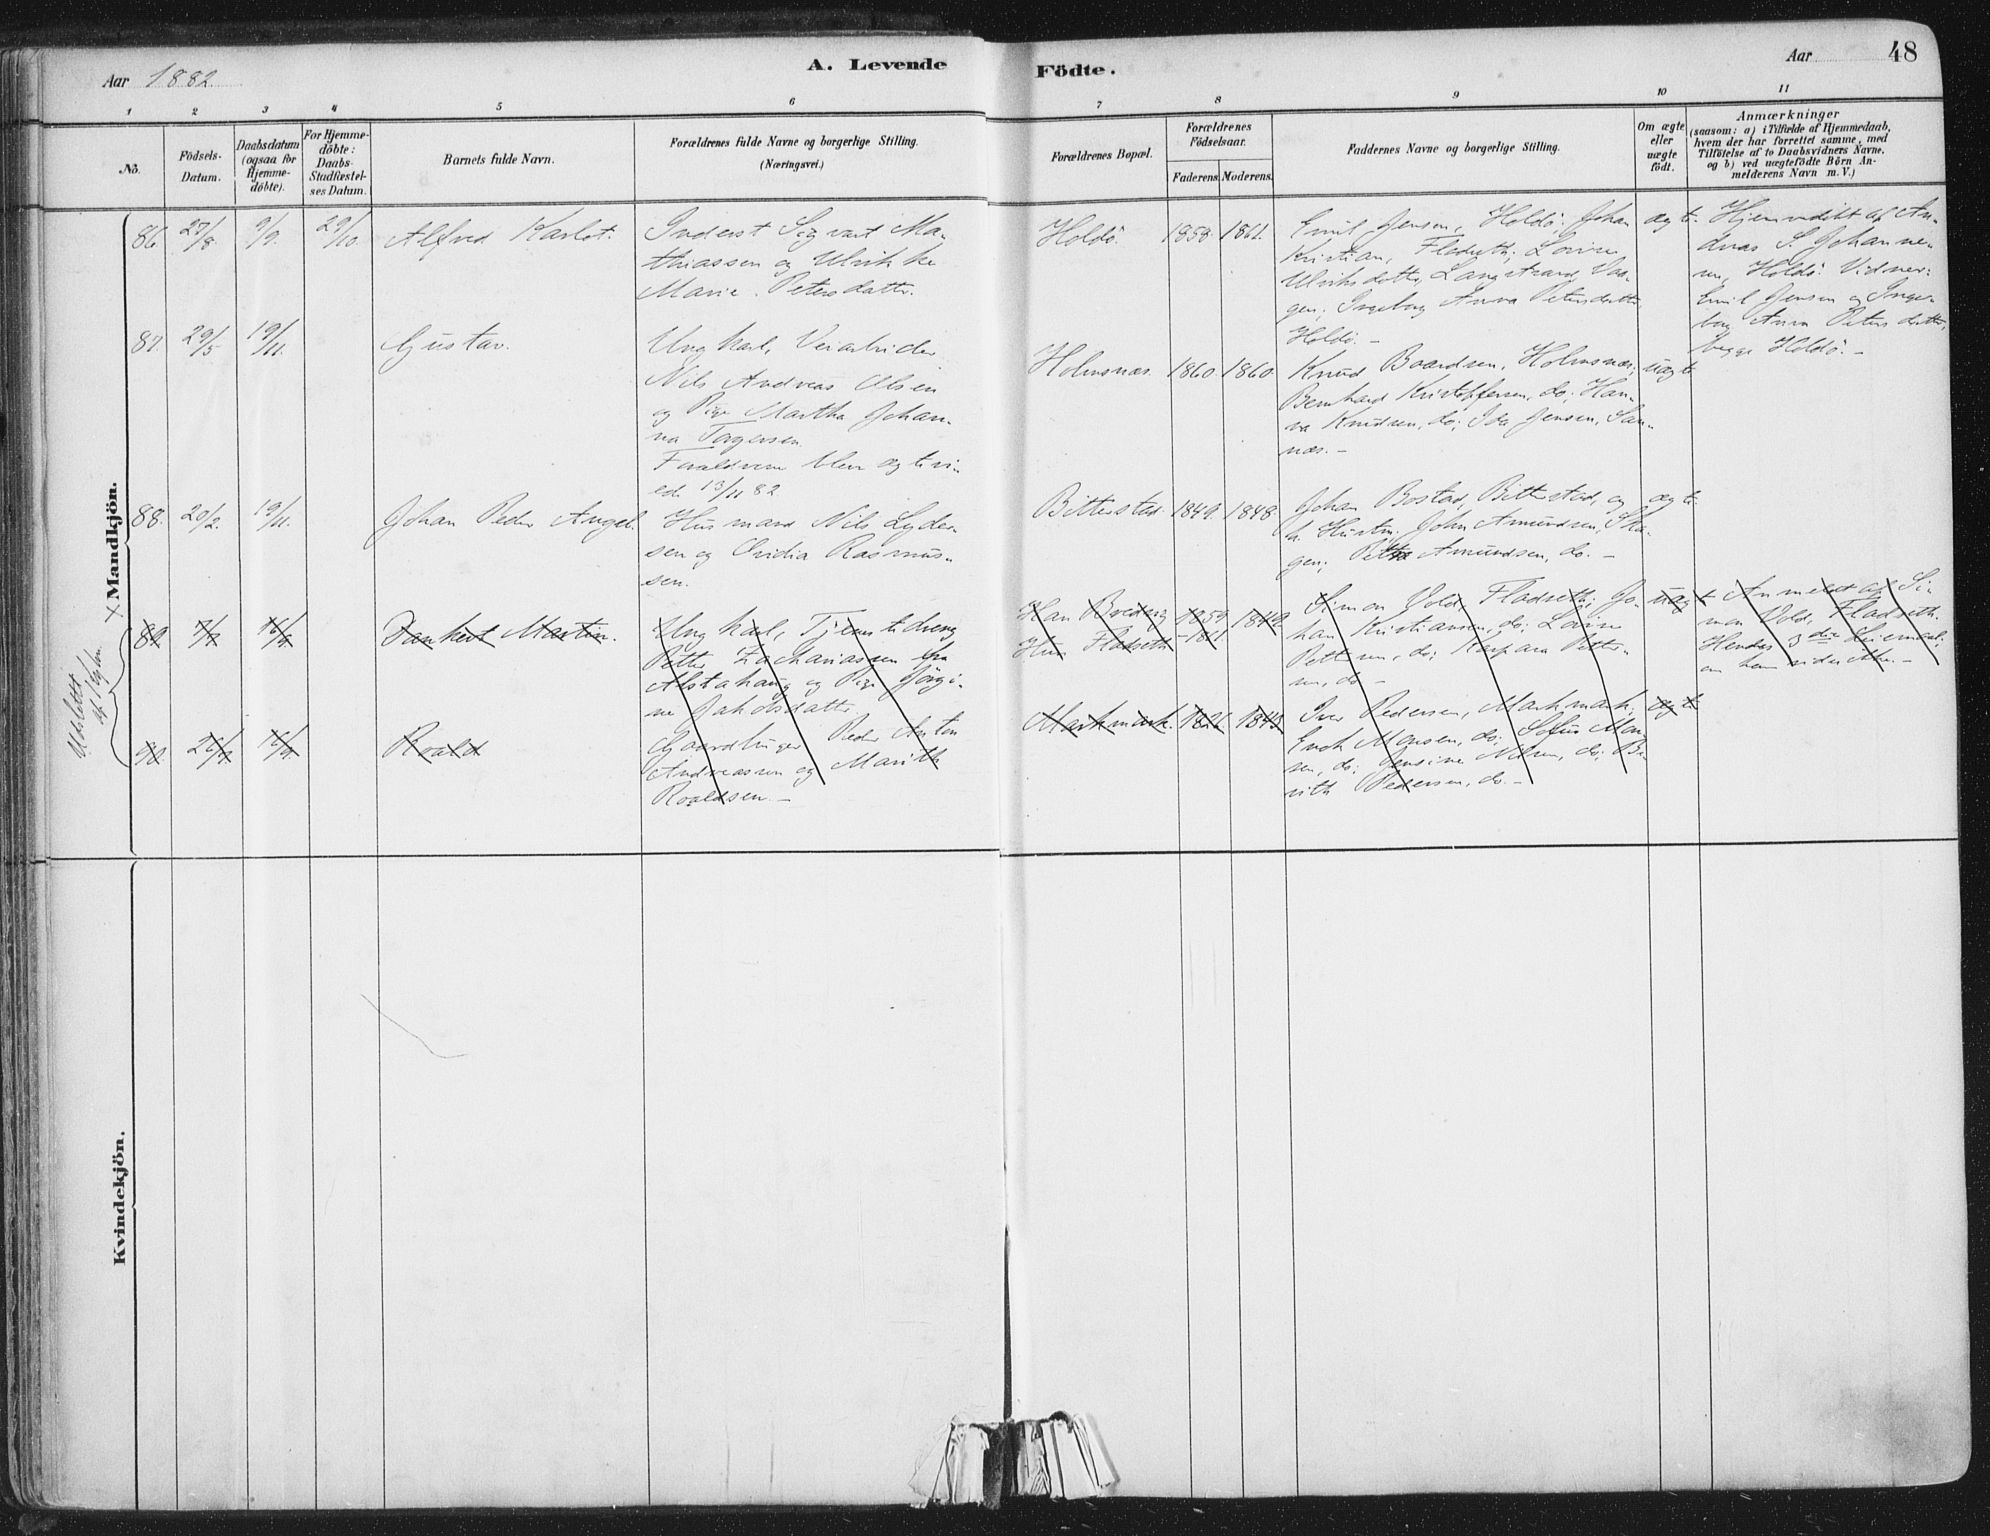 Aar 1882.
A. Levende
Födte.
Aar
48
1 2 3 4 5 6 7 8 9 10 11
No.
Födsels-
Datum.
Daabsdatum
(ogsaa for
Hjemme-
döbte).
For Hjemme-
döbte:
Daabs-
Stadfæstel-
ses Datum.
Barnets fulde Navn.
Forældrenes fulde Navne og borgerlige Stilling.
(Næringsvei.)
Forældrenes Bopæl.
Forældrenes
Födselsaar.
Faderens. Moderens.
Faddernes Navne og borgerlige Stilling.
Om ægte
eller
uægte
födt.
Anmærkninger
(saasom: a) i Tilfælde af Hjemmedaab,
hvem der har forrettet samme, med
Tilföielse af to Daabsvidners Navne,
og b) ved uægtefödte Börn An-
melderens Navn m. V.)
Mandkjön.
86. 27/8 9/9. 29/10. Alfred Karlot.
Inderst Sigvart Ma-
thiassen og Ulrikke
Marie Petersdatter.
Holdö. 1858. 1861.
Emil Jensen, Holdö. Johan
Kristian, Fladseth; Lovise
Ulriksdatter, Langstrand, Vaa-
gen; Ingeborg Anna Petersdatter,
Holdö. –
ægte.
Hjemmedöbt af An-
dreas S. Johanne-
sen, Holdö. Vidner:
Emil Jensen og Inge-
borg Anna Petersdatter,
begge Holdö. –
87. 29/5 19/11. Gustav.
Ungkarl, Veiarbeider
Nils Andreas Olsen
og Pige Martha Johan-
na Torgersen.
Forældrene blev ægtevi-
ede 13/11 82
Holmsnæs. 1860. 1860.
Knud Baardsen, Holmsnæs;
Bernhard Kristoffersen, do; Han-
na Knudsen, do; Ida Jensen, San-
næs. –
uægte
88. 20/2. 19/11. Johan Peder Angel.
Husmand Nils Lyder-
sen og Ovidia Rasmus-
sen.
Bitterstad. 1849. 1848.
Johan Bostad, Bitterstad, og
h. Hustru. John Amundsen, Ska-
gen; Petra Amundsen, do. –
ægte
Udslettet
89. 7/7 16/9 Dankert Martin.
Ungkarl, Tjenestedreng
Petter Zachariassen fra
Alstahaug og Pige Jörgi-
ne Jakobsdatter
Han Bredvig
Hun Fladseth
1859 1849.
– 1861.
Simon Vold, Fladseth; Jo-
han Kristiansen, do; Lovise
Pettersen, do; Kaspara Petter-
sen, do –
uægt
Anmeldt af Si-
mon Vold, Fladseth.
Hendes 3die Leiermaal;
90. 26/7 16/9. Roald
Gaardbruger Peder Anton
Andreassen og Marith
Roaldsen. –
Markmark. 1826 1843.
Iver Pedersen, Markmark;
Enok Monsen, do; Sofus Mon-
sen, do; Jensine Nilsen, do; Be-
rith Pedersen, do. –
ægte.
Kvindekjön.